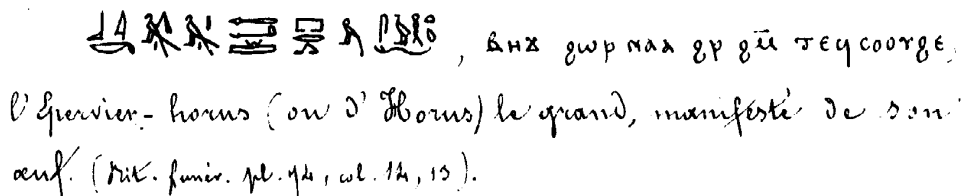 , ⲃⲏϫ ϩⲱⲣ ⲛⲁⲁ ϩⲣ ϩⲙ̄ ⲧⲉϥⲥⲟⲟⲩϩⲉ,
l'Epervier-horus (ou d'Horus) le grand, manifesté de son
œuf. (Rit. funér. pl. 74, col. 12, 13).